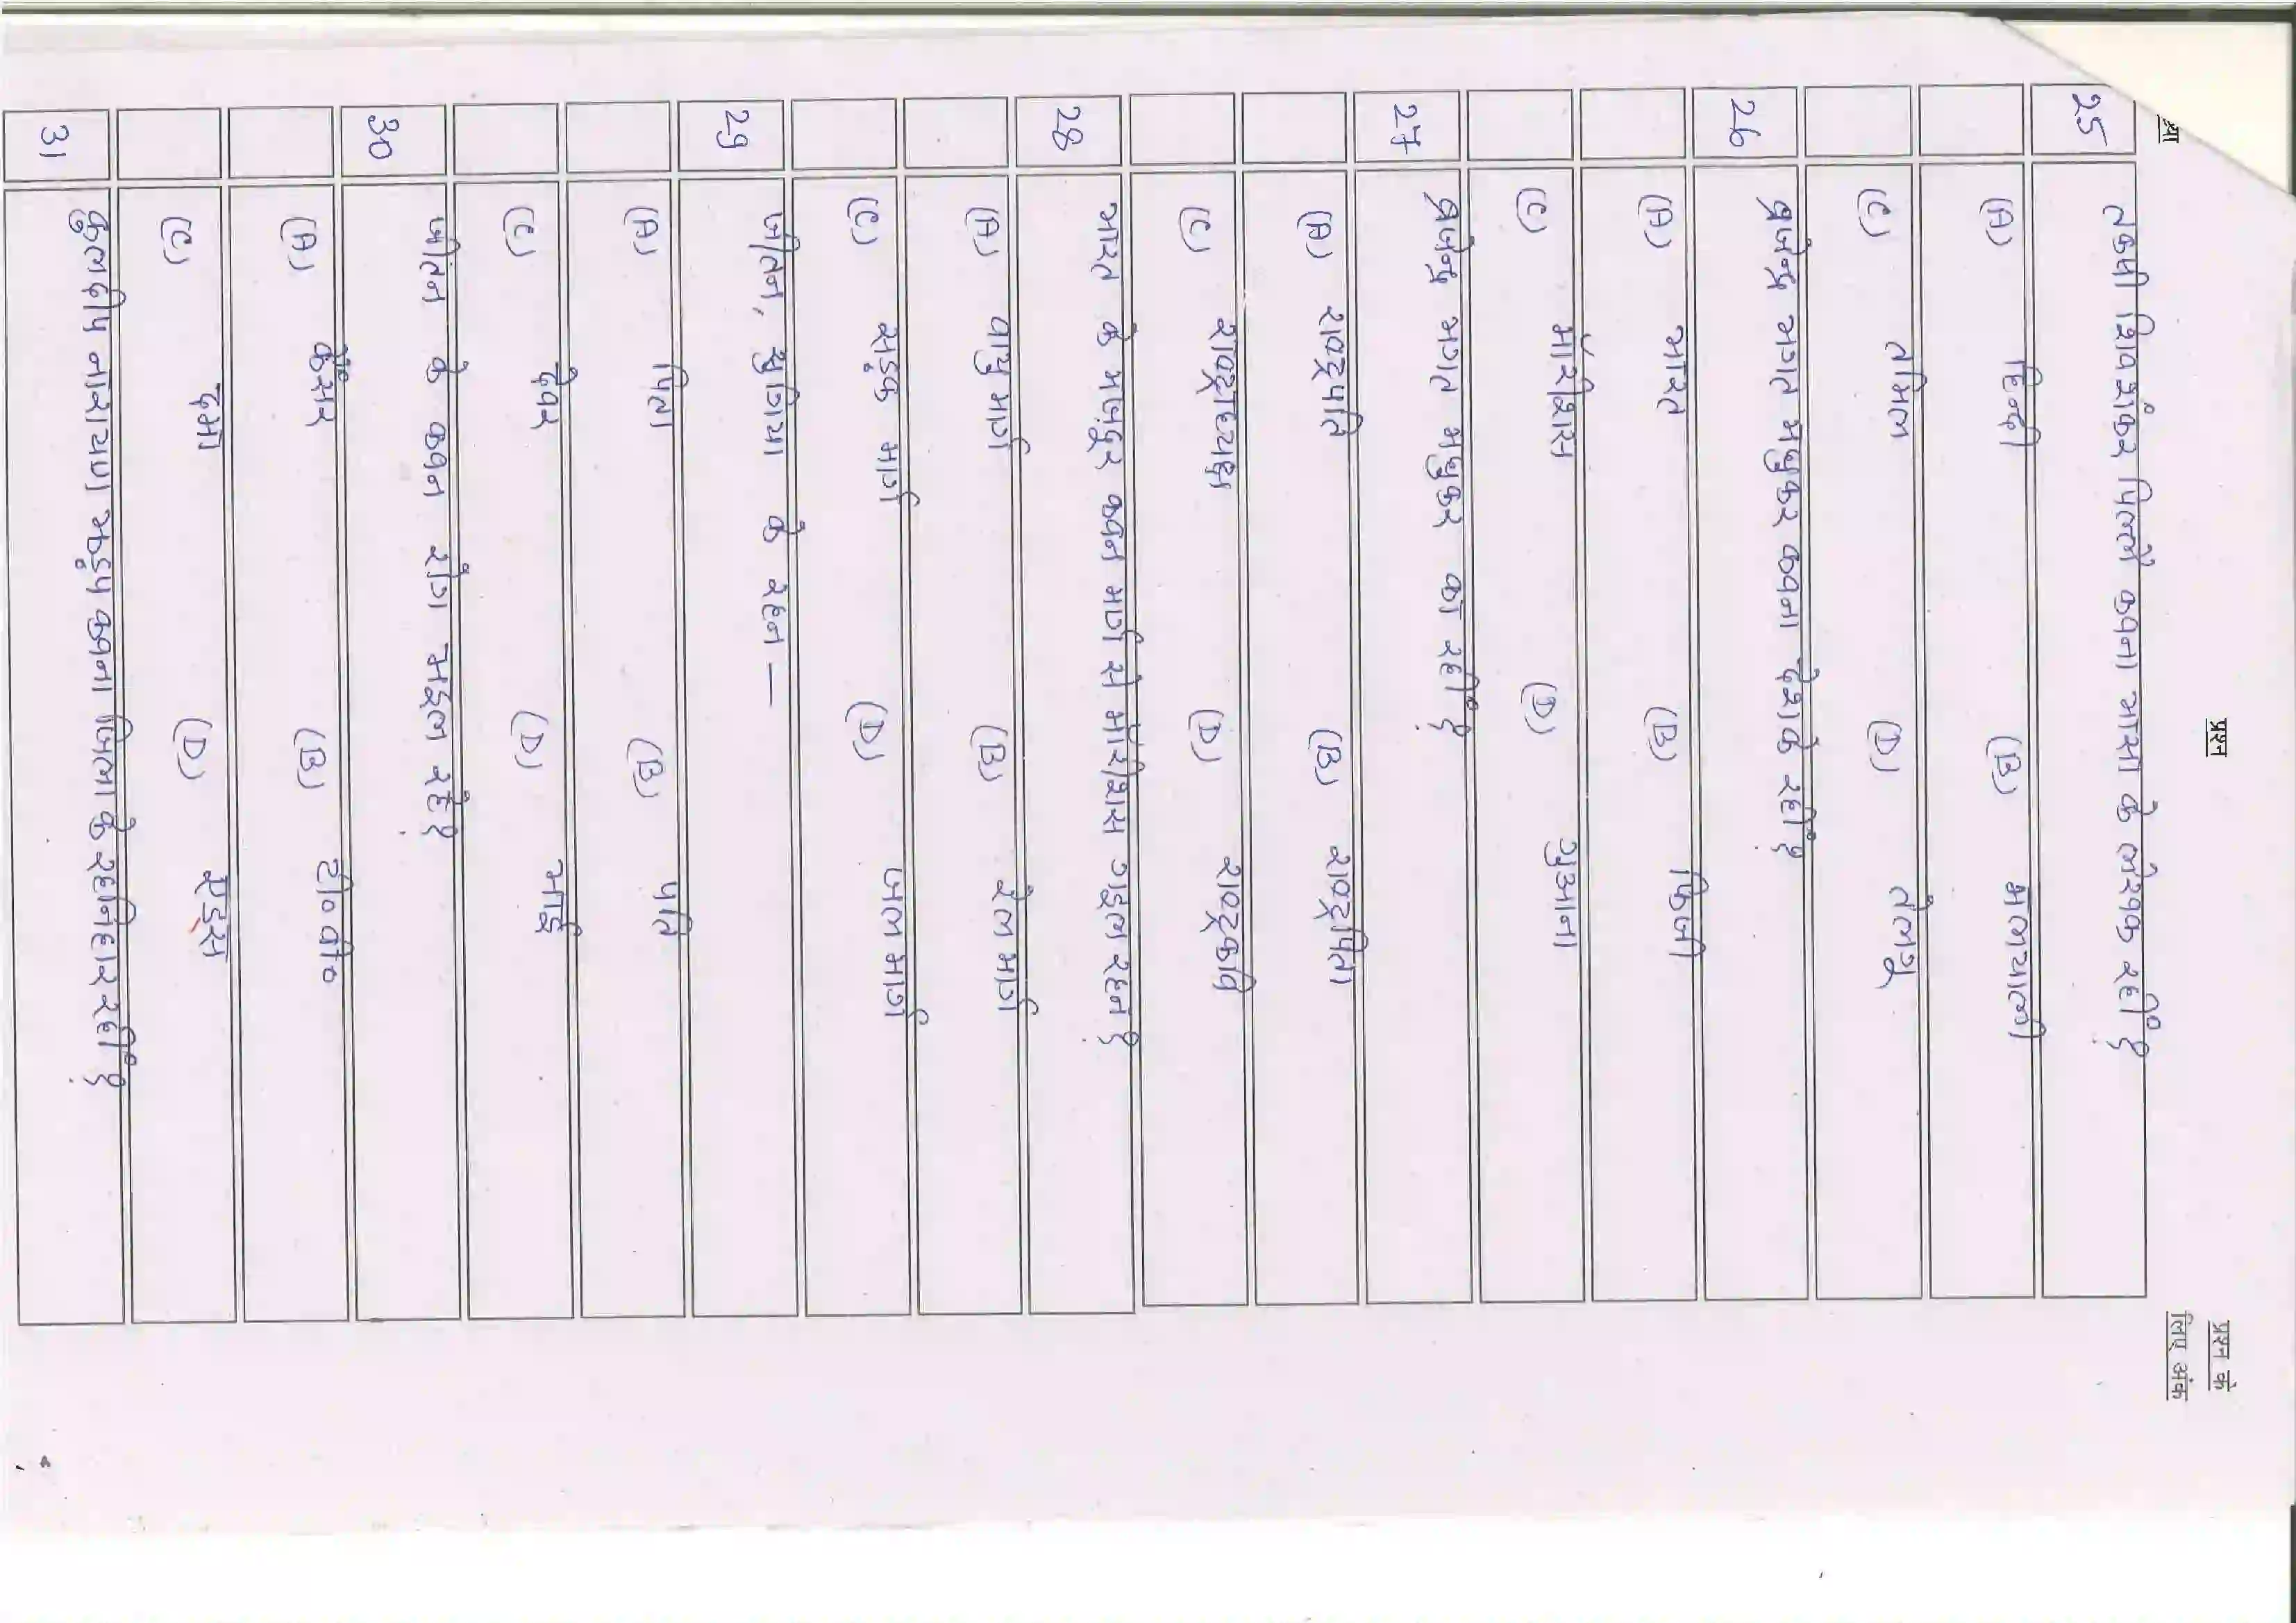 प्रश्न
प्रश्न के
लिए अंक
25 तकषी शिवशंकर पिल्लै कवना भासा के लेखक रहीं?
(A) हिन्दी (B) मलयाली
(C) तमिल (D) तेलगू
26 ब्रजेन्द्र भगत मधुकर कवना देशके रहीं?
(A) भारत (B) फिजी
(C) मॉरीशस (D) गुआना
27 ब्रजेन्द्र भगत मधुकर का रहीं?
(A) राष्ट्रपति (B) राष्ट्रपिता
(C) राष्ट्राध्यक्ष (D) राष्ट्रकवि
28 भारत के मजदूर कवन मार्ग से मॉरीशस गइल रहन?
(A) वायु मार्ग (B) रेल मार्ग
(C) सड़क मार्ग (D) जल मार्ग
29 जीतन, झुनिया के रहन —
(A) पिता (B) पति
(C) देवर (D) भाई
30 जीतन के कवन रोग भइल रहे?
(A) कैंसर (B) टी० वी०
(C) दमा (D) एड्स
31 कुलदीप नारायण झड़प कवना जिला के रहनिहार रहीं?